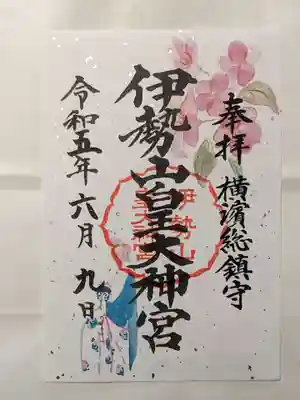 奉拝 横濱総鎮守
伊勢山皇大神宮
伊勢山皇大神宮
令和五年 六月 九日